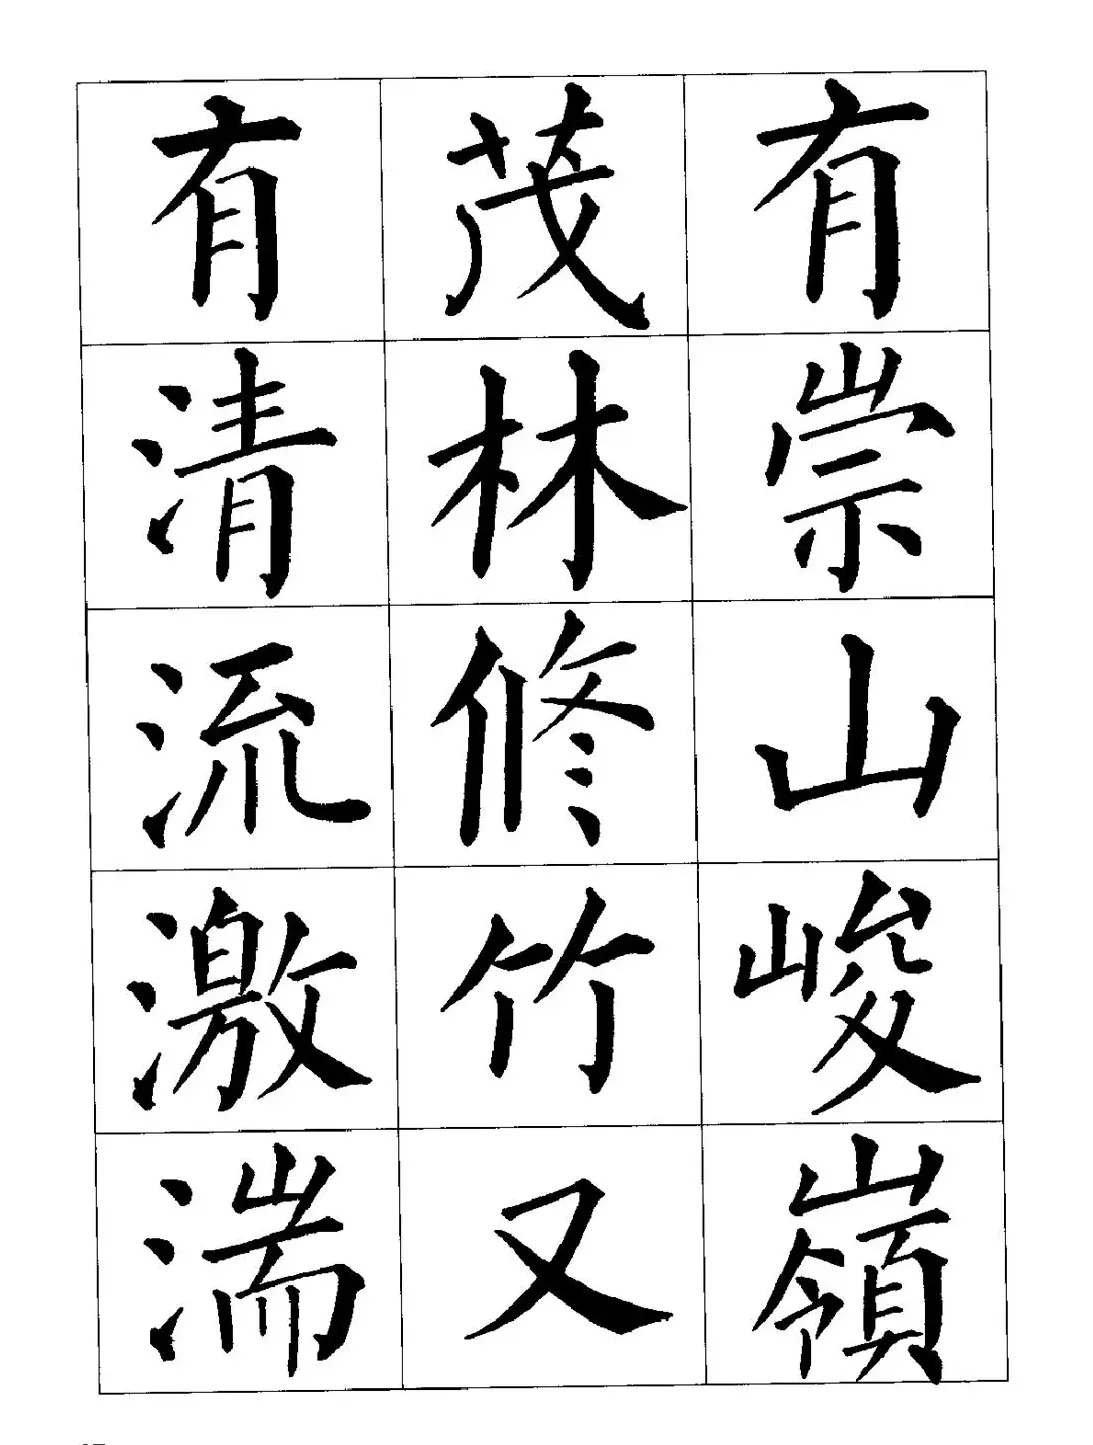 有崇山峻嶺
茂林修竹又
有清流激湍